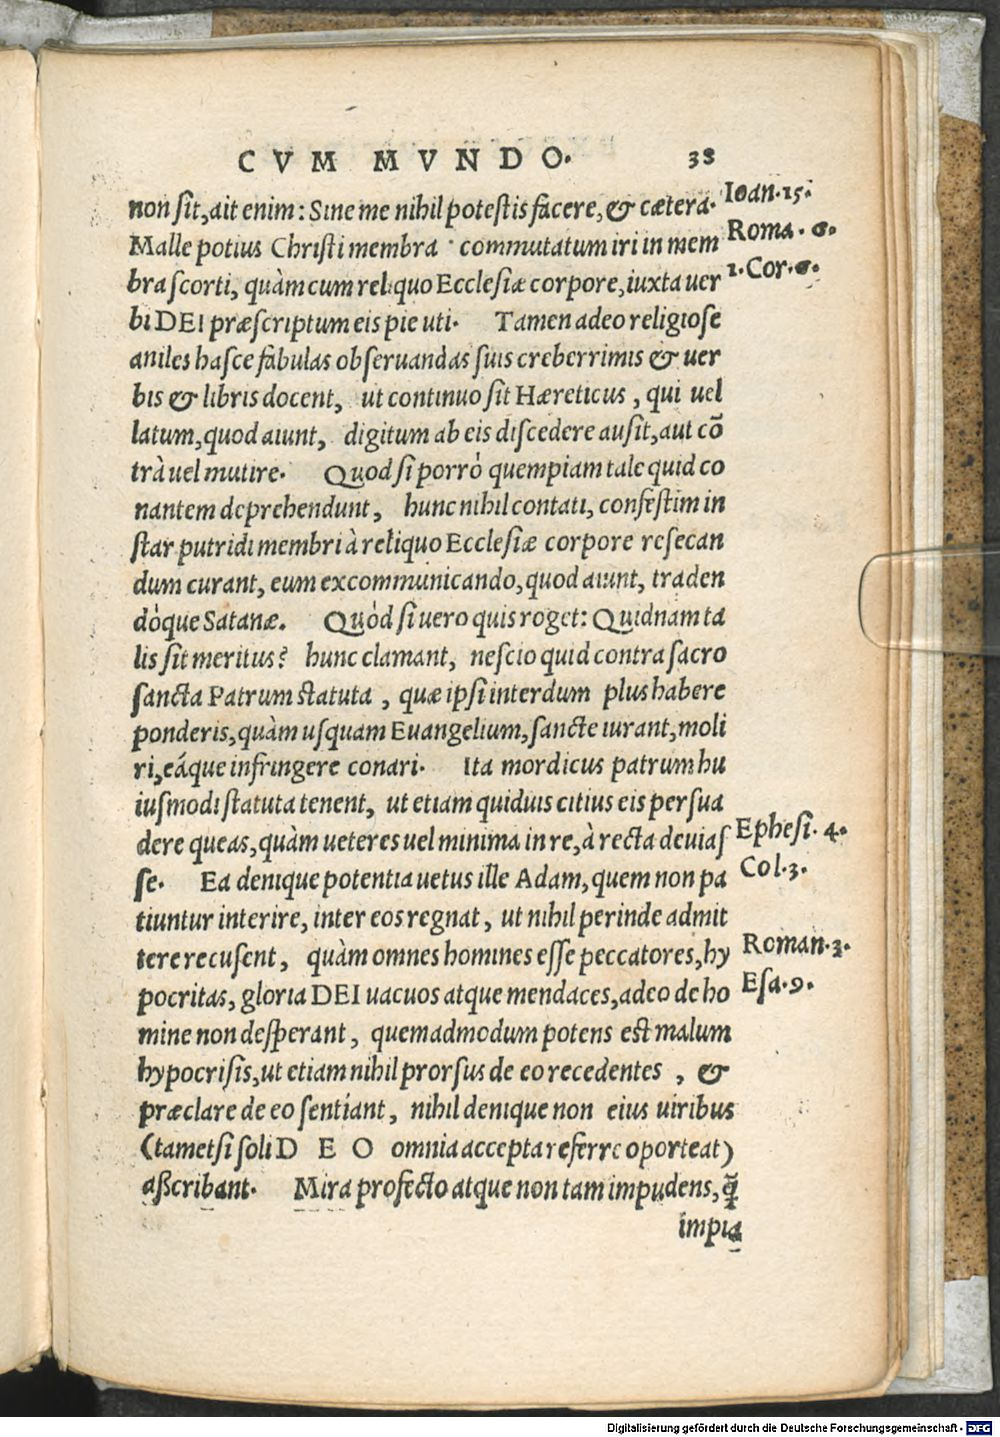 CVM MVNDO. 38
non sit, ait enim: Sine me nihil potestis facere, & cætera. Ioan. 15.
Malle potius Christi membra commutatum iri in mem Roma. 6.
bra scorti, quàm cum reliquo Ecclesiæ corpore, iuxta uer 1. Cor. 6.
bi DEI præscriptum eis pie uti. Tamen adeo religiose
aniles hasce fabulas obseruandas suis creberrimis & uer
bis & libris docent, ut continuo sit Hæreticus, qui uel
latum, quod aiunt, digitum ab eis discedere ausit, aut cõ
trà uel mutire. Quod si porrò quempiam tale quid co
nantem deprehendunt, hunc nihil contati, confestim in
star putridi membri à reliquo Ecclesiæ corpore resecan
dum curant, eum excommunicando, quod aiunt, traden
dóque Satanæ. Quòd si uero quis roget: Quidnam ta
lis sit meritus? hunc clamant, nescio quid contra sacro
sancta Patrum statuta, quæ ipsi interdum plus habere
ponderis, quàm usquam Euangelium, sancte iurant, moli
ri, eáque infringere conari. Ita mordicus patrum hu
iusmodi statuta tenent, ut etiam quiduis citius eis persua
dere queas, quàm ueteres uel minima in re, à recta deuias Ephesi. 4.
se. Ea denique potentia uetus ille Adam, quem non pa Col. 3.
tiuntur interire, inter eos regnat, ut nihil perinde admit
tere recusent, quàm omnes homines esse peccatores, hy Roman. 3.
pocritas, gloria DEI uacuos atque mendaces, adeo de ho Esa. 9.
mine non desperant, quemadmodum potens est malum
hypocrisis, ut etiam nihil prorsus de eo recedentes, &
præclare de eo sentiant, nihil denique non eius uiribus
(tametsi soli DEO omnia accepta referre oporteat)
aßcribant. Mira profecto atque non tam impudens, q̃
impia
Digitalisierung gefördert durch die Deutsche Forschungsgemeinschaft - DFG